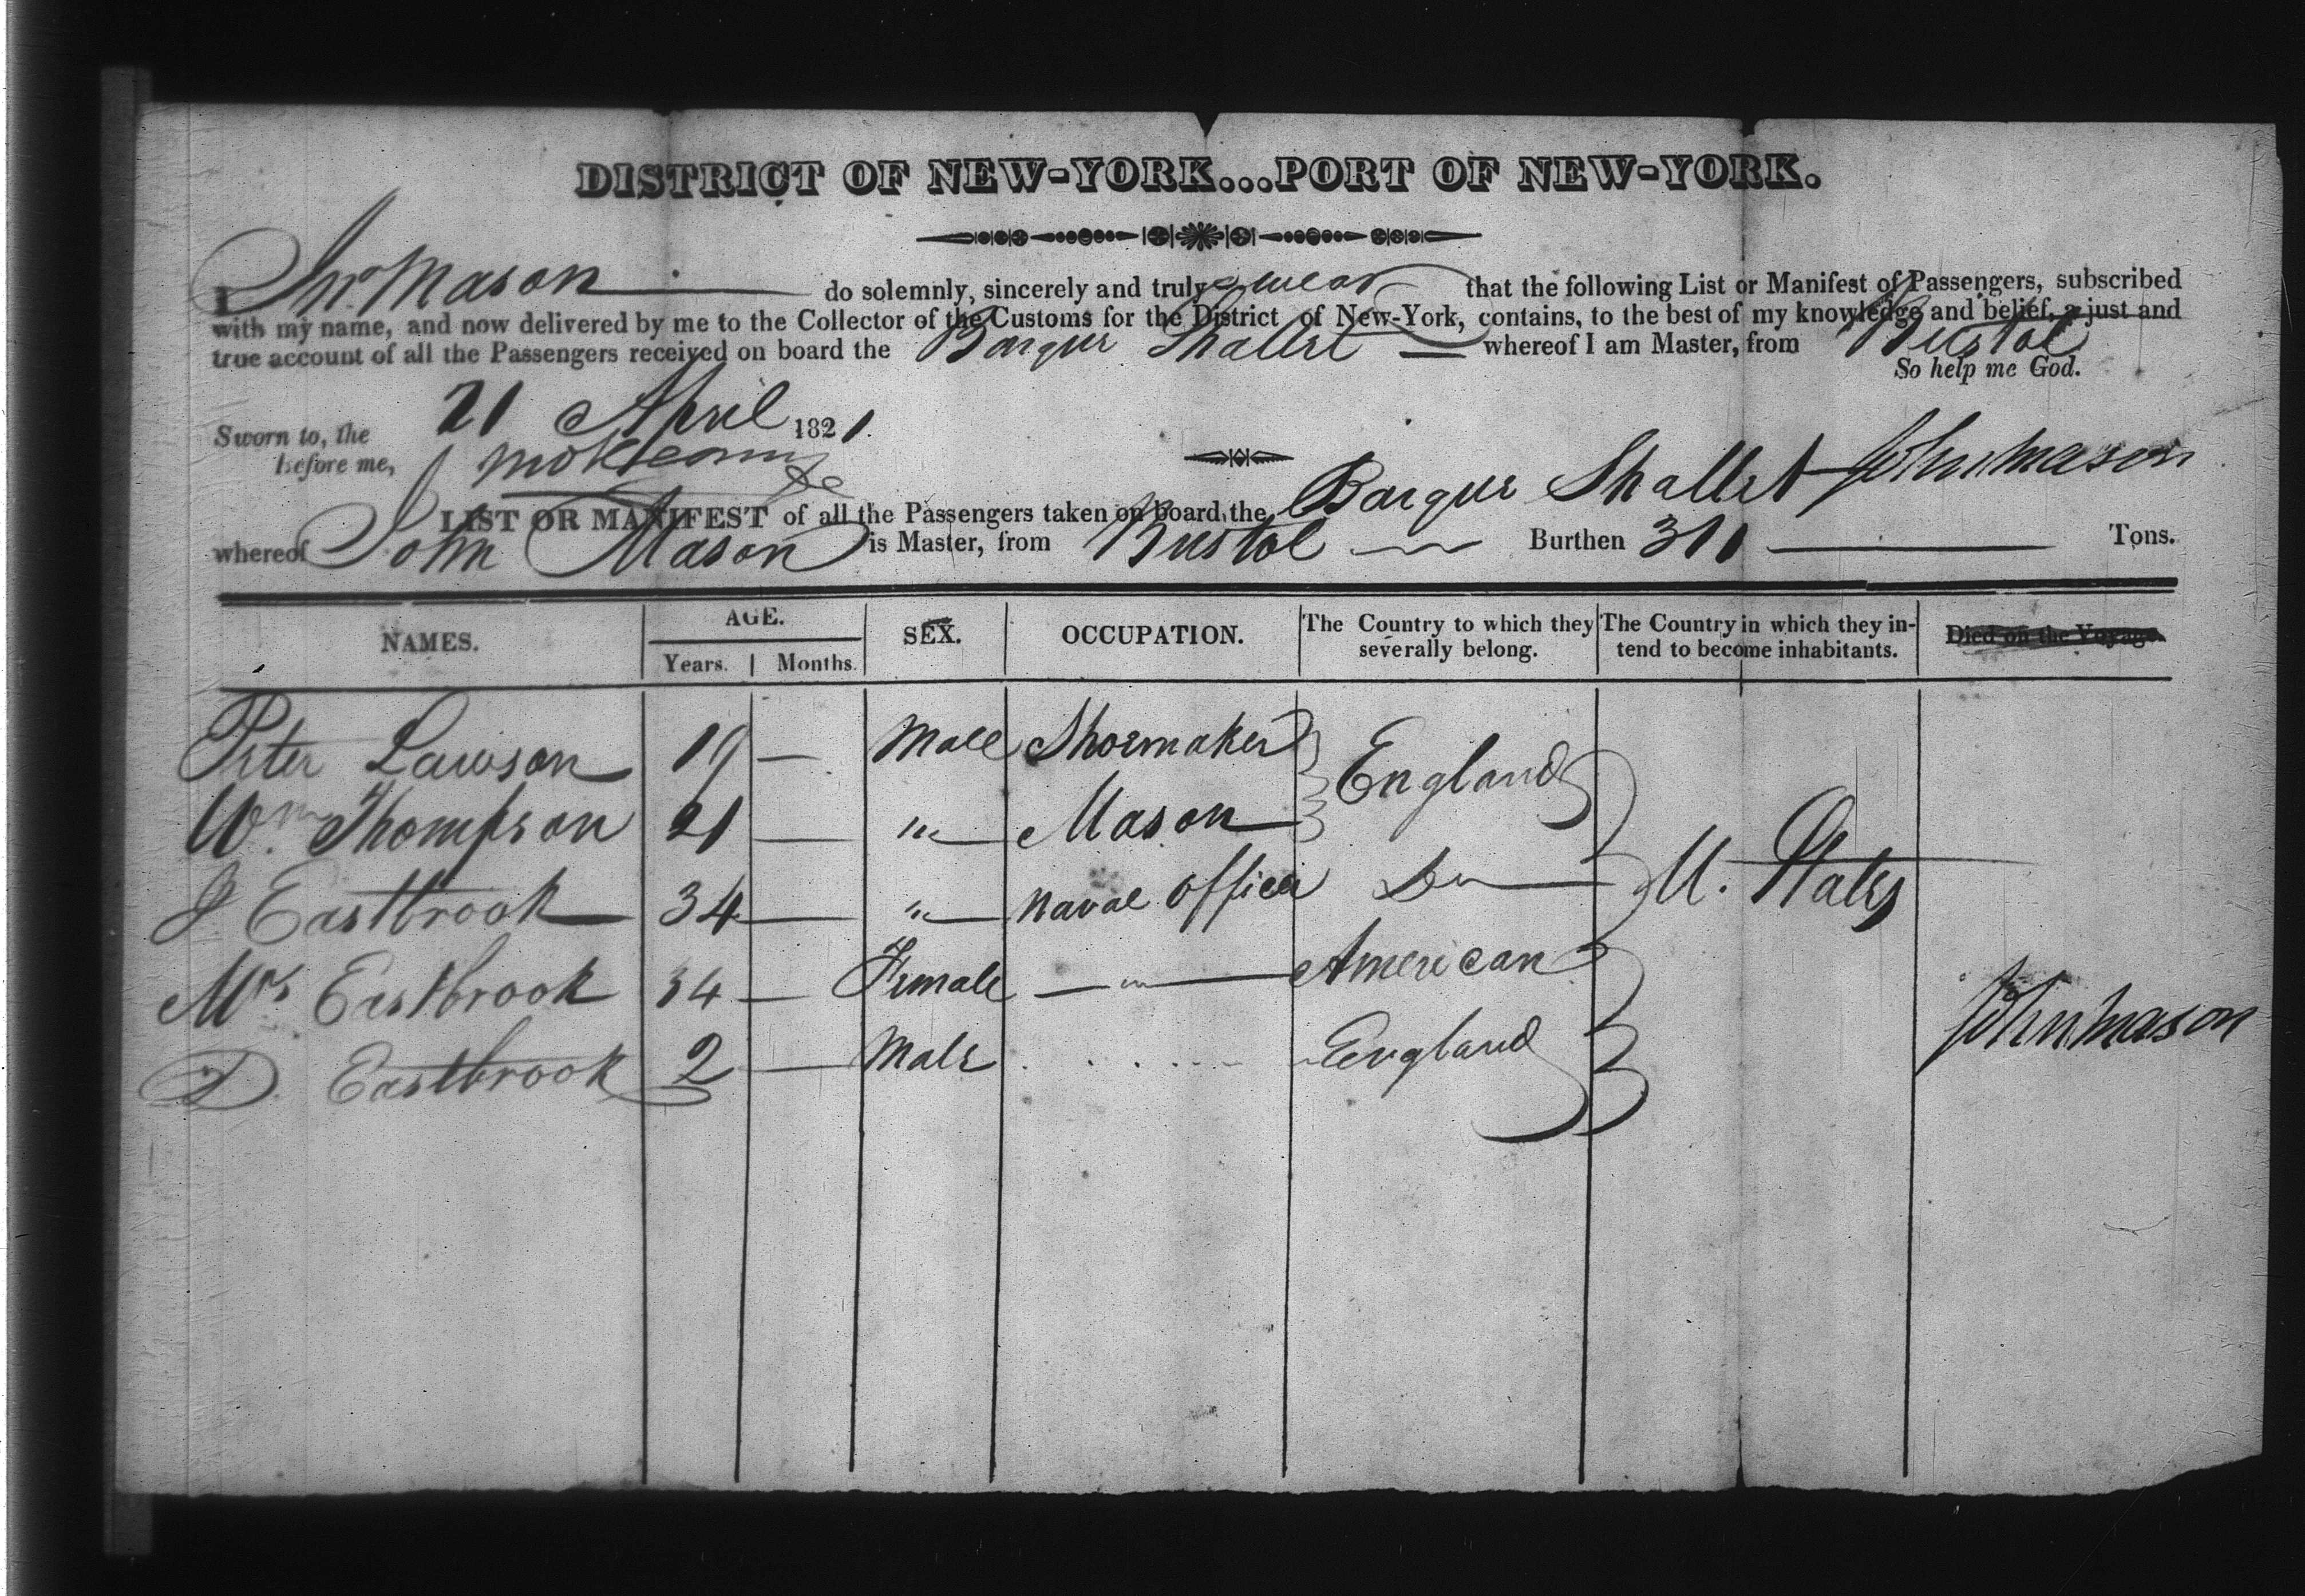 DISTRICT OF NEW-YORK...PORT OF NEW-YORK.
I Jno. Mason do solemnly, sincerely and truly swear that the following List or Manifest of Passengers, subscribed
with my name, and now delivered by me to the Collector of the Customs for the District of New-York, contains, to the best of my knowledge and belief, a just and
true account of all the Passengers received on board the Barque Shallet whereof I am Master, from Bristol
So help me God.
Sworn to, the 21 April 1821.
before me,
John Mason
LIST OR MANIFEST of all the Passengers taken on board the Barque Shallet
whereof John Mason is Master, from Bristol Burthen 311 Tons.
NAMES. AGE. SEX. OCCUPATION. The Country to which they severally belong. The Country in which they intend to become inhabitants. Died on the Voyage.
Years. Months.
Peter Lawson 19 — Male Shoemaker England
Wm Thompson 21 — " — Mason
J Eastbrook 34 — " — Naval Officer Do — U. States
Mrs Eastbrook 34 — Female — " — American
D. Eastbrook 2 — Male England
John Mason